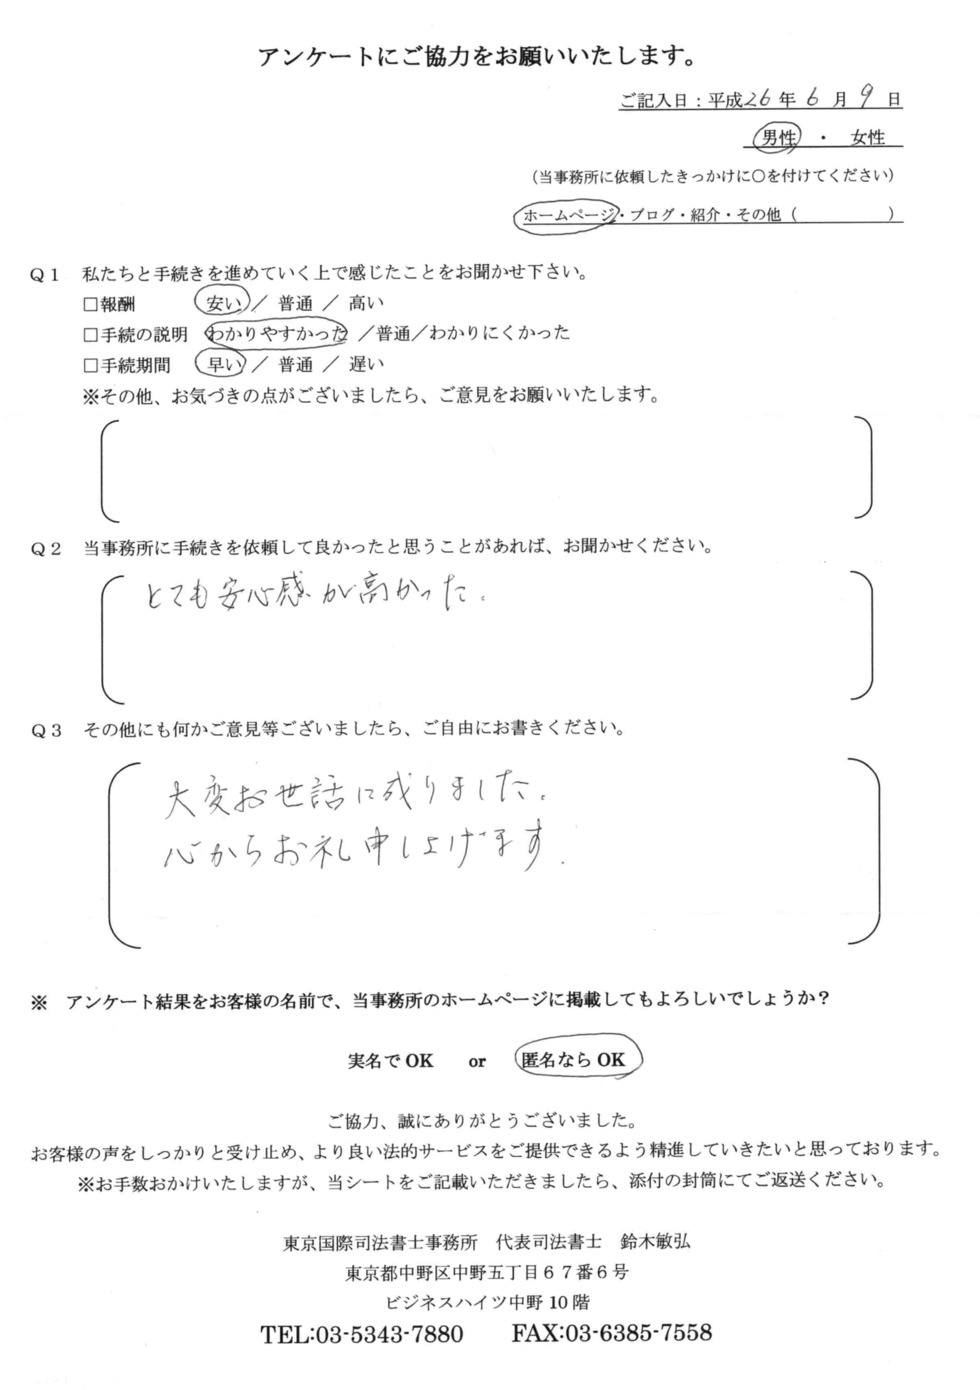 アンケートにご協力をお願いいたします。
ご記入日：平成26年6月9日
男性 ・ 女性
（当事務所に依頼したきっかけに○を付けてください）
ホームページ・ブログ・紹介・その他（　　　　　）
Ｑ１　私たちと手続きを進めていく上で感じたことをお聞かせ下さい。
□報酬　安い ／ 普通 ／ 高い
□手続の説明　わかりやすかった ／普通／わかりにくかった
□手続期間　早い ／ 普通 ／ 遅い
※その他、お気づきの点がございましたら、ご意見をお願いいたします。
Ｑ２　当事務所に手続きを依頼して良かったと思うことがあれば、お聞かせください。
とても安心感が高かった。
Ｑ３　その他にも何かご意見等ございましたら、ご自由にお書きください。
大変お世話に成りました。
心からお礼申し上げます.
※　アンケート結果をお客様の名前で、当事務所のホームページに掲載してもよろしいでしょうか？
実名でOK　or　匿名ならOK
ご協力、誠にありがとうございました。
お客様の声をしっかりと受け止め、より良い法的サービスをご提供できるよう精進していきたいと思っております。
※お手数おかけいたしますが、当シートをご記載いただきましたら、添付の封筒にてご返送ください。
東京国際司法書士事務所　代表司法書士　鈴木敏弘
東京都中野区中野五丁目６７番６号
ビジネスハイツ中野10階
TEL:03-5343-7880　FAX:03-6385-7558